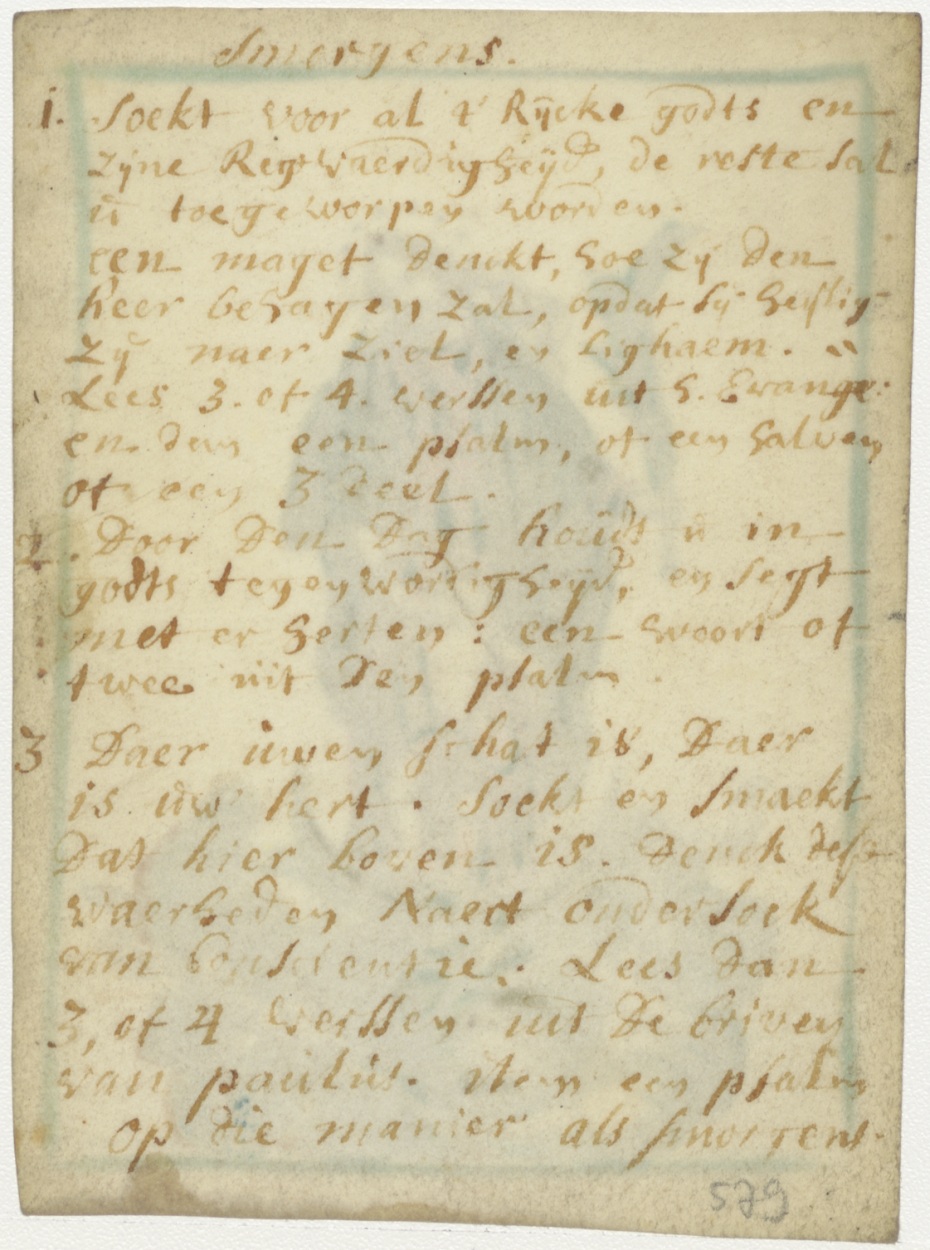 Smorgens.
1. Soekt voor al 't Rijcke godts en
zijne Regtvaerdigheijd, de reste sal
u toegeworpen worden.
een maget denckt, hoe zij den
heer behagen zal, opdat sij heijlig
zij naer ziel, en Lighaem.
Lees 3. of 4. verssen uit h. Evange:
en dan een psalm, of een halven
of een 3 deel.
2. Door Den Dag houdt u in
godts tegenwordigheijd, en segt
met er herten: een woort of
twee uit Den psalm.
3 Daer uwen schat is, Daer
is uw hert. Soekt en smaekt
Dat hier boven is. Denck dese
waerheden Naert ondersoek
van Consientie. Lees Dan
3, of 4 verssen uit De briven
van paulus. item een psalm
op die manier als smorgens.
579